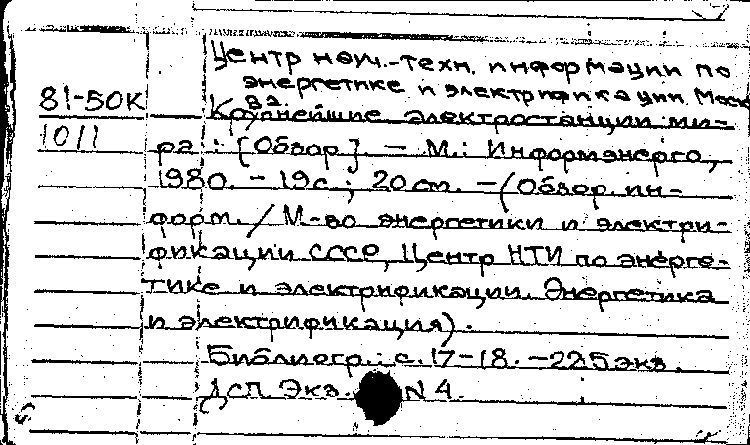 Центр науч.-техн. информации по
энергетике и электрификации. Моск
81-50К
Крупнейшие электростанции ми-
1011
ра : [Обзор]. – М.: Информэнерго,
1980. – 19с.; 20 см. – (Обзор. ин-
форм. / М-во энергетики и электри-
фикации СССР, Центр НТИ по энерге-
тике и электрификации. Энергетика
и электрификация).
Библиогр.: с. 17-18. – 225 экз.
Дсп. Экз. N 4.